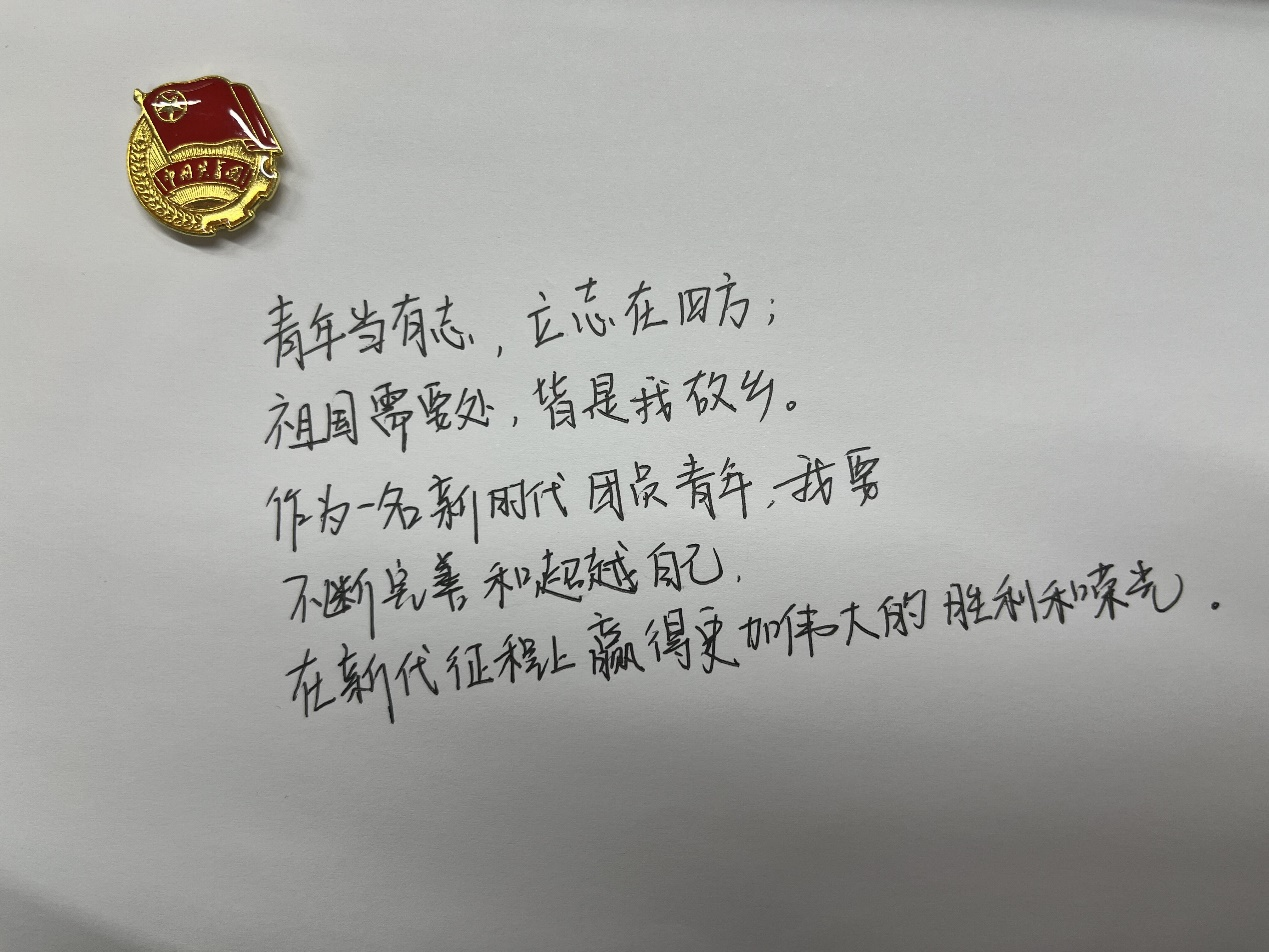 中国共青团
青年当有志，立志在四方；
祖国需要处，皆是我故乡。
作为一名新时代团员青年，我要
不断完善和超越自己，
在新代征程上赢得更加伟大的胜利和荣光。